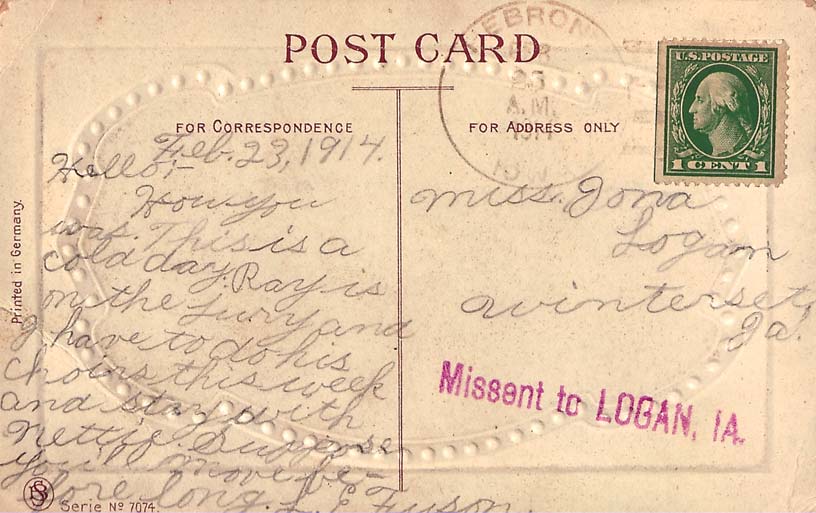 POST CARD
FOR CORRESPONDENCE
Feb. 23, 1914.
Hello:-
How you
was. This is a
cold day. Ray is
on the jury and
I have to do his
choirs this week
and stay with
Nettie Suppose
you'll move be-
fore long. L E Fuson.
FOR ADDRESS ONLY
EBRON
25
A.M.
U.S. POSTAGE
1 CENT 1
Miss. Iona
Logan
Winterset,
Ia.
Missent to LOGAN, IA.
Printed in Germany.
Serie No 7074.